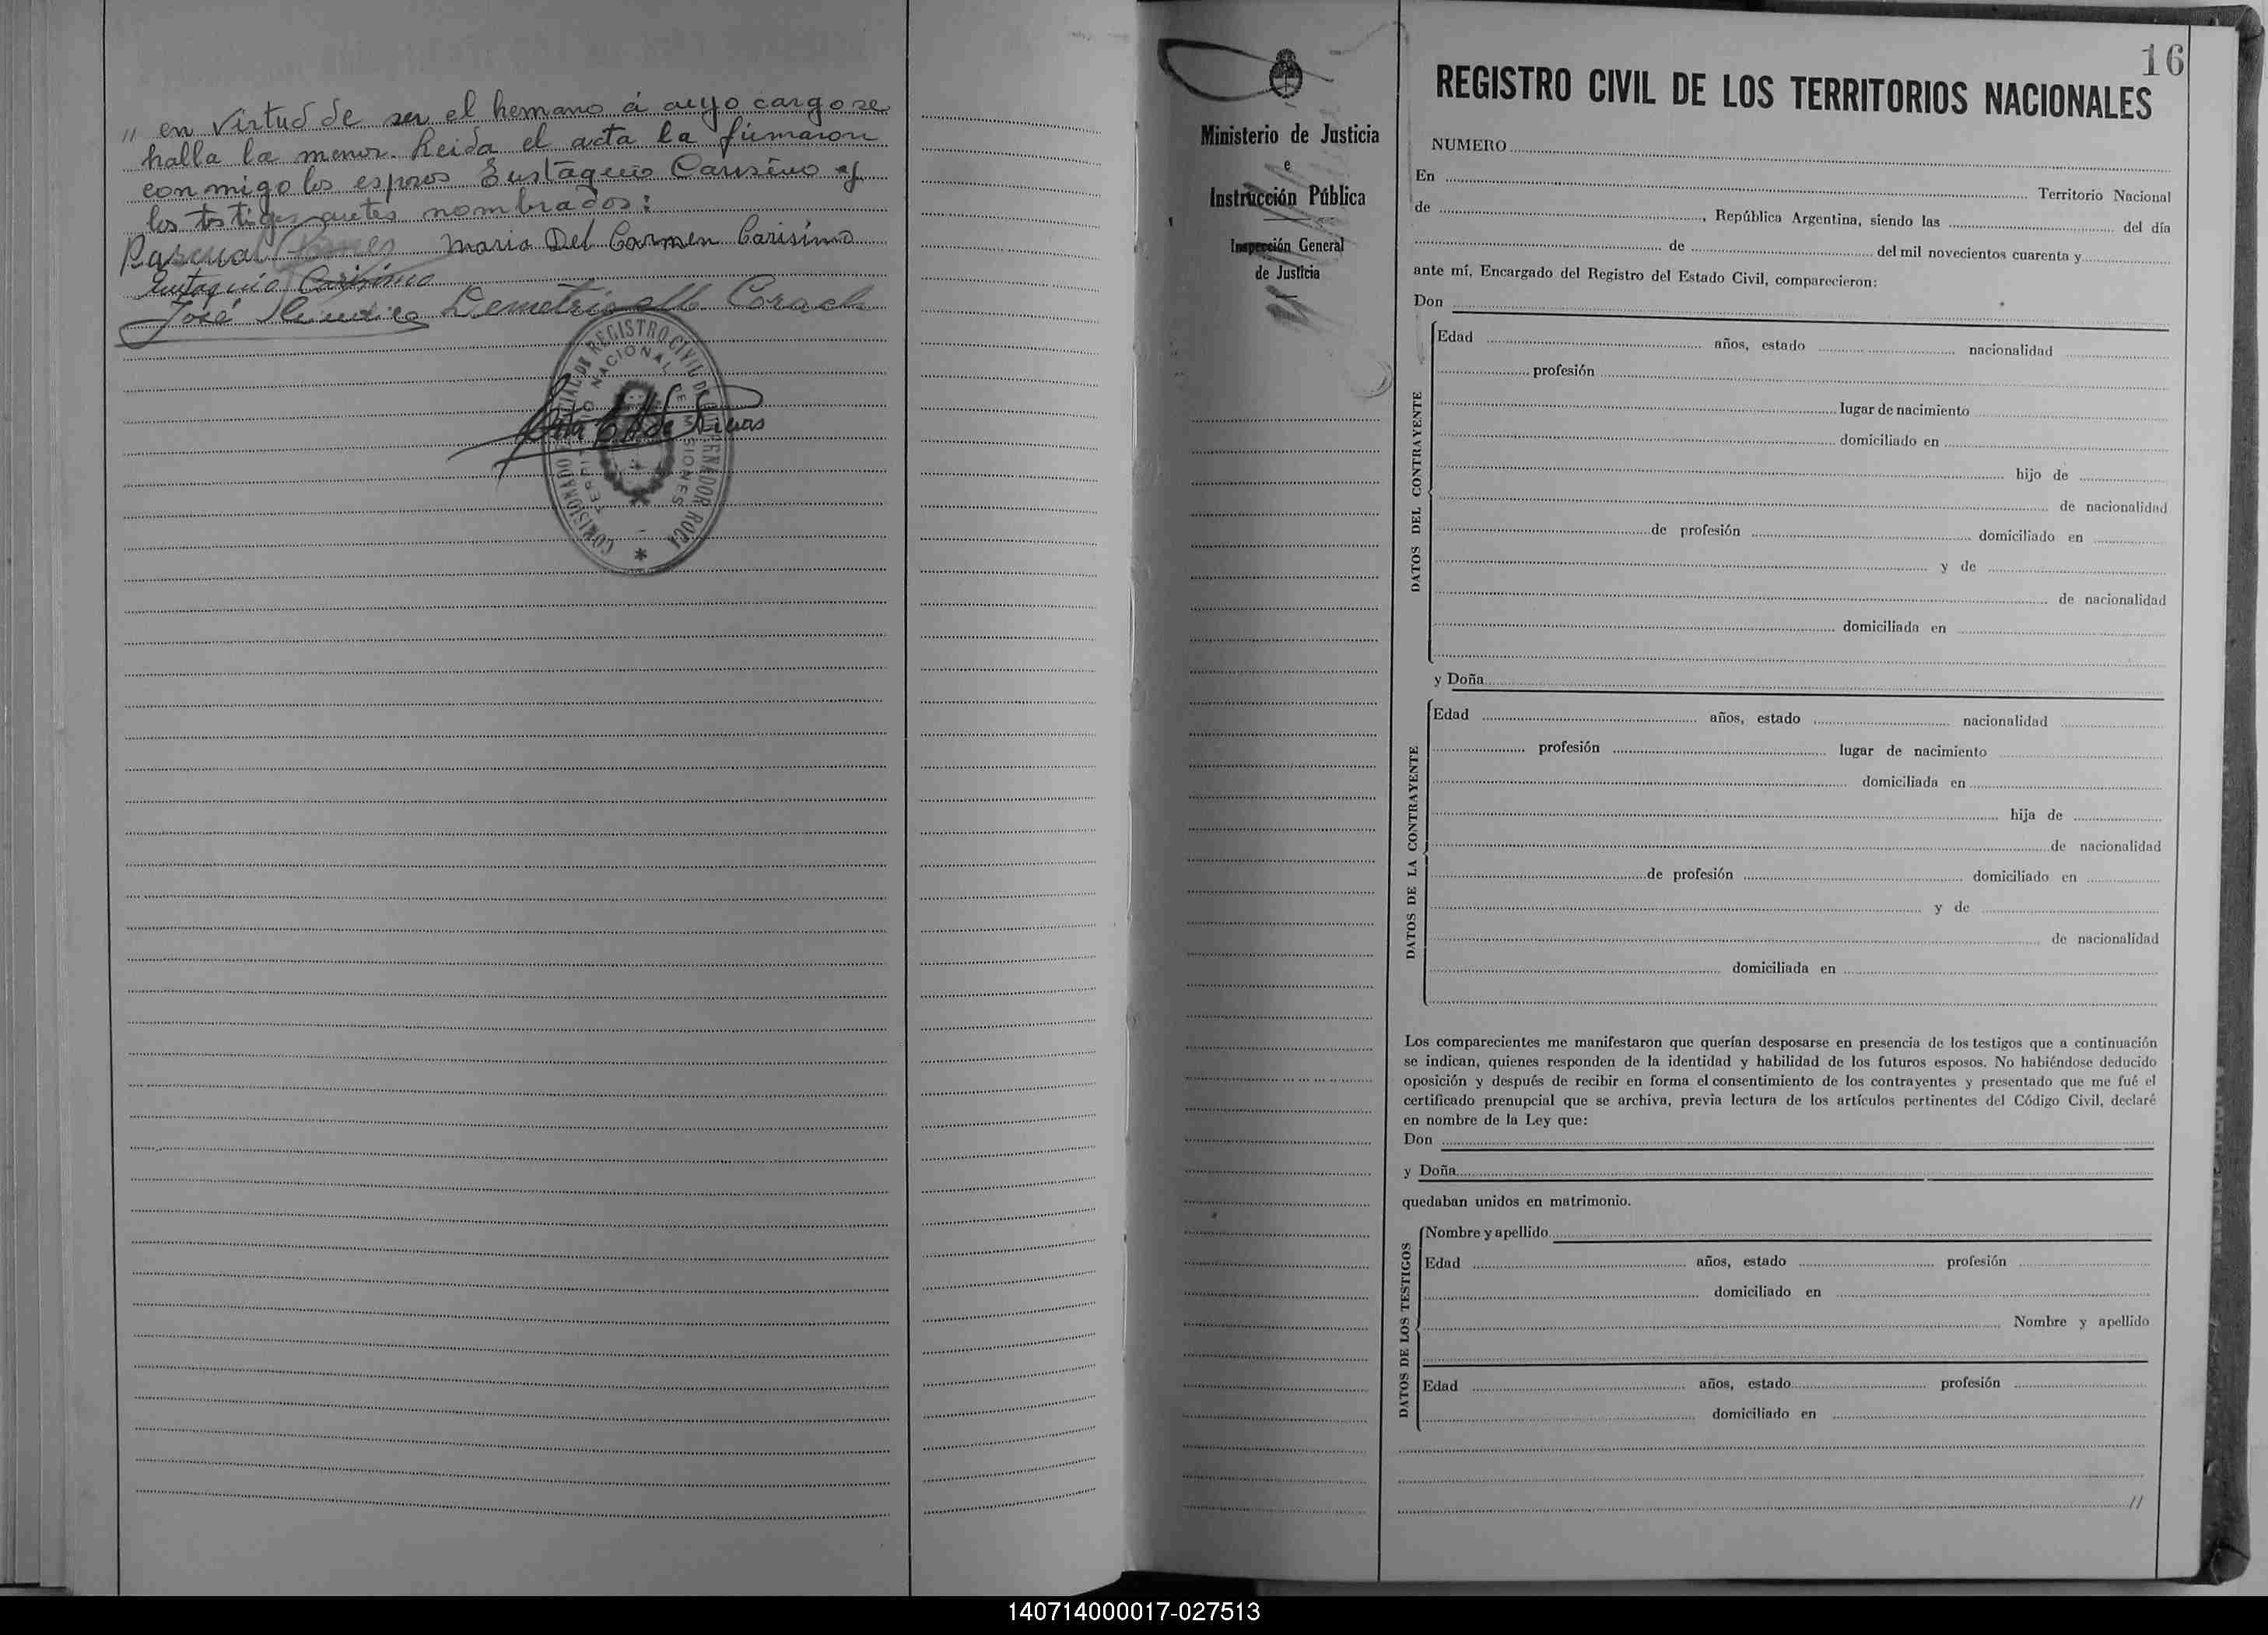 " en virtud de ser el hermano á cuyo cargo se
halla la menor. Leida el acta la firmaron
conmigo los esposos Eustaquio Carisimo y
los testigos antes nombrados:
Pascual Maria Del Carmen Carisimo
Eutaquio Carisimo
José Demetrio
COMISIONADO REGISTRO CIVIL DE GOBERNADOR ROCA
TERRITORIO NACIONAL DE MISIONES
de
Ministerio de Justicia
e
Instrucción Pública
Inspección General
de Justicia
16
REGISTRO CIVIL DE LOS TERRITORIOS NACIONALES
NUMERO
En Territorio Nacional
de , República Argentina, siendo las del día
de del mil novecientos cuarenta y
ante mí, Encargado del Registro del Estado Civil, comparecieron:
Don
DATOS DEL CONTRAYENTE
Edad años, estado nacionalidad
profesión
lugar de nacimiento
domiciliado en
hijo de
de nacionalidad
de profesión domiciliado en
y de
de nacionalidad
domiciliada en
y Doña
DATOS DE LA CONTRAYENTE
Edad años, estado nacionalidad
profesión lugar de nacimiento
domiciliada en
hija de
de nacionalidad
de profesión domiciliado en
y de
de nacionalidad
domiciliada en
Los comparecientes me manifestaron que querían desposarse en presencia de los testigos que a continuación
se indican, quienes responden de la identidad y habilidad de los futuros esposos. No habiéndose deducido
oposición y después de recibir en forma el consentimiento de los contrayentes y presentado que me fué el
certificado prenupcial que se archiva, previa lectura de los artículos pertinentes del Código Civil, declaré
en nombre de la Ley que:
Don
y Doña
quedaban unidos en matrimonio.
DATOS DE LOS TESTIGOS
Nombre y apellido
Edad años, estado profesión
domiciliado en
Nombre y apellido
Edad años, estado profesión
domiciliado en
//
140714000017-027513